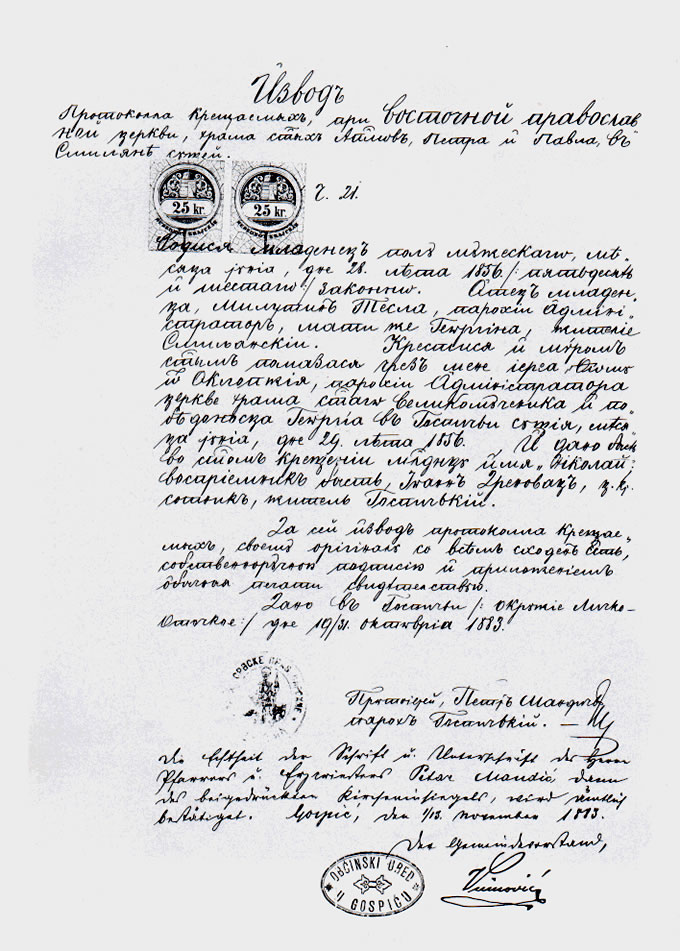 Изводъ
Протоколла крещаемыхъ, при восточной православ
ной церкви, храма стыхъ Апловъ, Петра и Павла, въ
Смилянѣ сущей.
25 kr. 25 kr.
Ч. 21.
Родися младенецъ полѫ мѫжескагω, мѣ-
сяца іѹніа, дне 28. лѣта 1856./: пятьдесять
и шестагω:/ законнω. Отецъ младен-
ца, Милутинъ Тесла, парохіи Админі-
страторъ, мати же Геωргіна, жителіе
Смилянскіи. Крестися и мѵромъ
стымъ помазася чрезъ мене іереа
Оклопжія, парохіи Администратора
церкве храма стагω Великомѫченика и по-
бѣдоносца Геωргіа въ Госпичѣ сѫщія, мѣся-
ца іѹніа, дне 24. лѣта 1856. И дано
во стомъ крещеніи младенцѫ имя „Николай:
воспріемникъ бысть, Іωаннъ Дреновацъ, ц. кр.
сотникъ, житель Госпичъкій.
За сей изводъ протоколла креща-
емыхъ, своемѫ орігіналѫ со всѣмъ сходенъ быть,
собственнорѫчною подписію и приложеніемъ
обычныя печати свидѣтельствѫю.
Дано въ Госпичѣ /: окрѫжіе Личко-
Оточкое:/ дне 19/31. октωвріа 1883.
СРБСКЕ ПРАВ
Протоіерей, Петръ Мандичъ
парохъ Госпичъкій.
Die Echtheit der Schrift u. Unterschrift des Herrn
Pfarrers u. Erzpriesters Petar Mandić dann
des beigedrückten Kircheninsiegels, wird ämtlich
bestätiget. Gospić, den 1/13. November 1883.
Der Gemeindevorstand,
OBĆINSKI URED
U GOSPIĆU